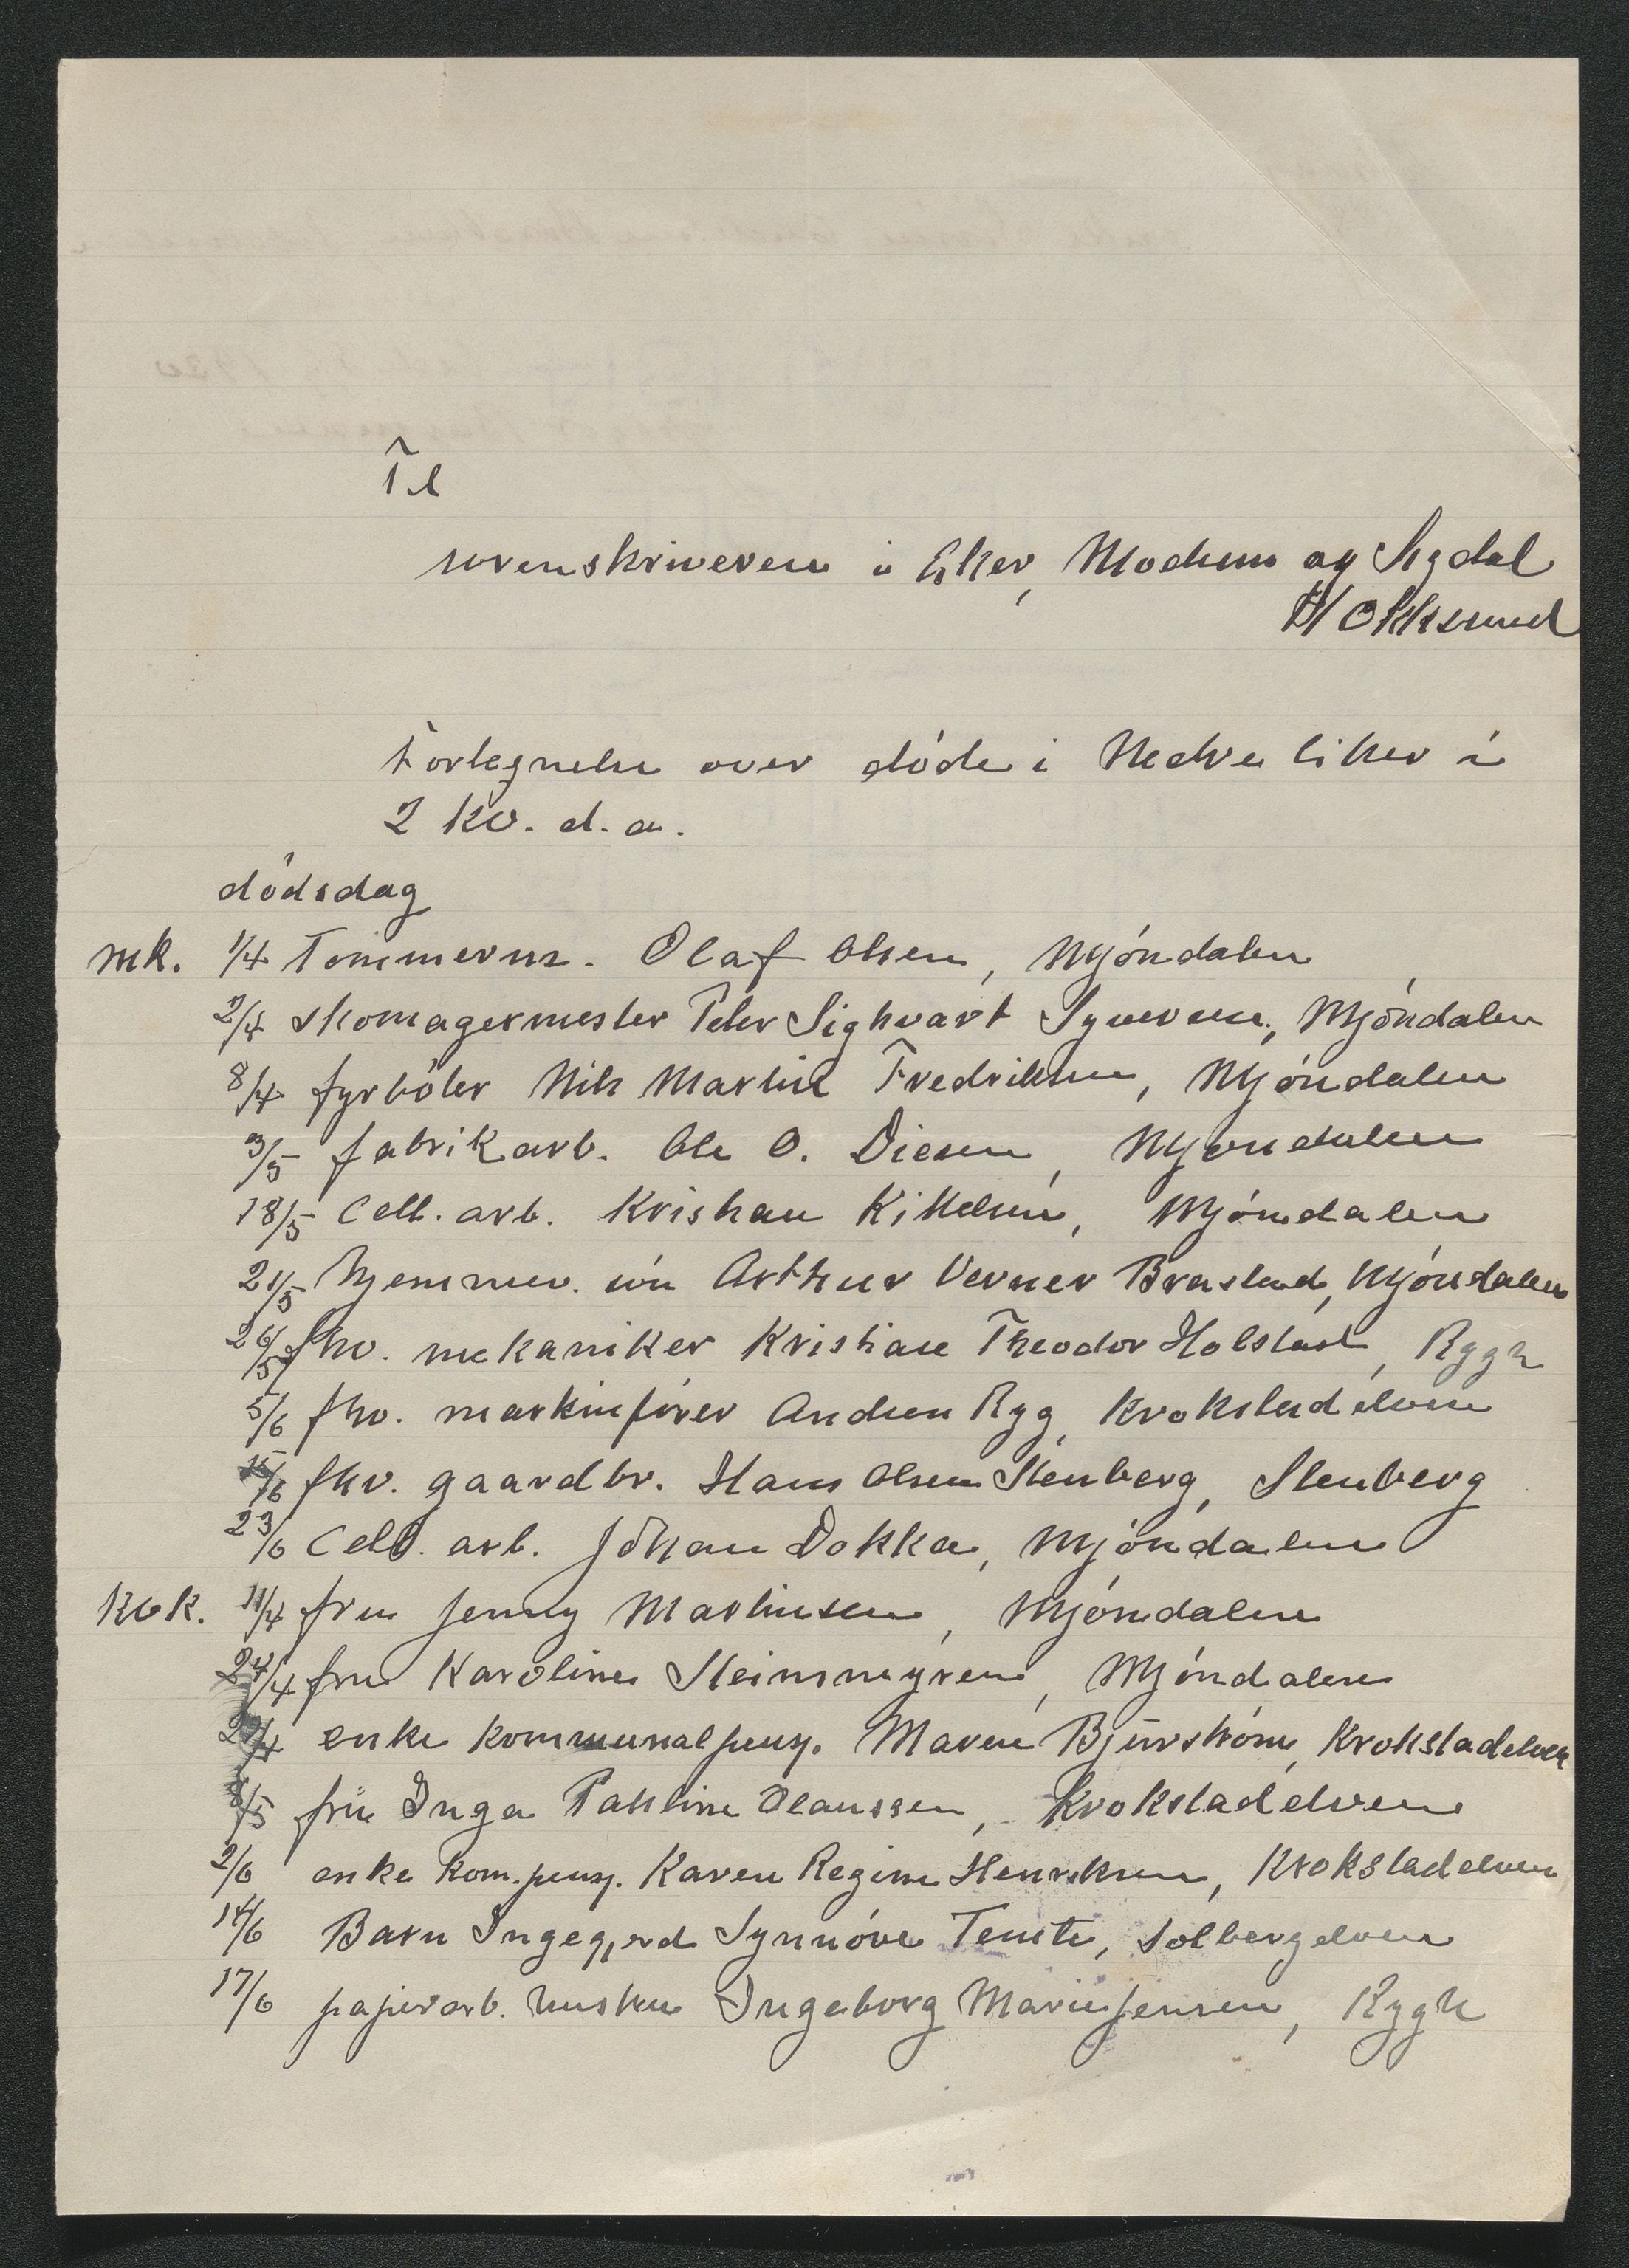 Til
sorenskriveren i Eker, Modum og Sigdal
Hokksund
Fortegnelse over døde i Nedre Eiker i
2 kv. d. a.
dødsdag
mk. 1/4 Tømmerm. Olaf Olsen, Mjøndalen
2/4 skomagermester Peter Sighvart Syversen, Mjøndalen
8/4 fyrbøter Nils Martin Fredriksen, Mjøndalen
3/5 fabrikarb. Ole O. Diesen, Mjøndalen
18/5 Cell. arb. Kristian Kittelsen, Mjøndalen
21/5 hjemmev. søn Arthur Verner Brastad, Mjøndalen
26/5 fhv. mekaniker Kristian Theodor Holstad, Rygh
5/6 fhv. maskinfører Andreas Ryg, Krokstadelven
/6 fhv. gaardbr. Hans Olsen Stenberg, Stenberg
23/6 Cell. arb. Johan Dokka, Mjøndalen
kvk. 11/4 fru Jenny Martinsen, Mjøndalen
24/4 fru Karoline Steinsmyren, Mjøndalen
/4 enke kommunalpensj. Maren Bjürstrøm, Krokstadelven
8/5 fru Inga Pauline Olaussen, Krokstadelven
2/6 enke kom.pensj. Karen Regine Henriksen, Krokstadelven
14/6 Barn Ingegjerd Synnøve Temte, Solbergelven
17/6 papirarb. hustru Ingeborg Marie Jensen, Rygh